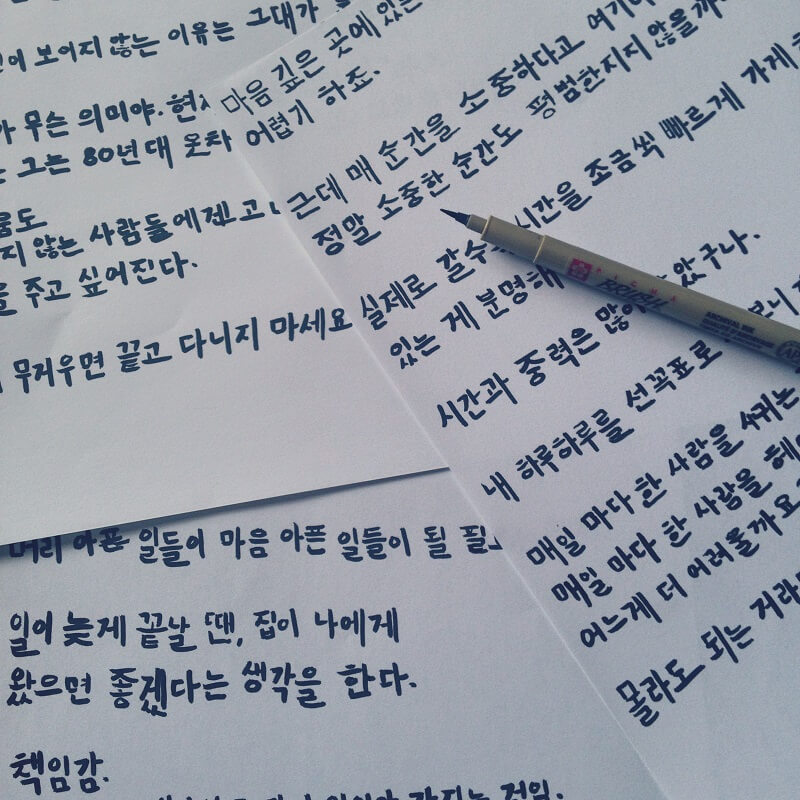 보이지 않는 이유는 그대가
무슨 의미야. 현
그는 80년대 옷차
지 않는 사람들에겐 고
을 주고 싶어진다.
무거우면 끌고 다니지 마세요
마음 깊은 곳에 있는
어렵기 하죠.
근데 매 순간을 소중하다고 여기
정말 소중한 순간도 평범한지지 않을까
실제로 갈수 시간을 조금씩 빠르게 가게
있는 게 분명해 았구나.
시간과 중력은 많이 보니
내 하루하루를 선꼭표로
매일 마다 한 사람을 사귀는
매일 마다 한 사람을 헤
어느게 더 어려울까요
몰라도 되는 거라
머리 아픈 일들이 마음 아픈 일들이 될 필
일이 늦게 끝날 땐, 집이 나에게
왔으면 좋겠다는 생각을 한다.
책임감.
PIGMA
BRUSH
ARCHIVAL INK